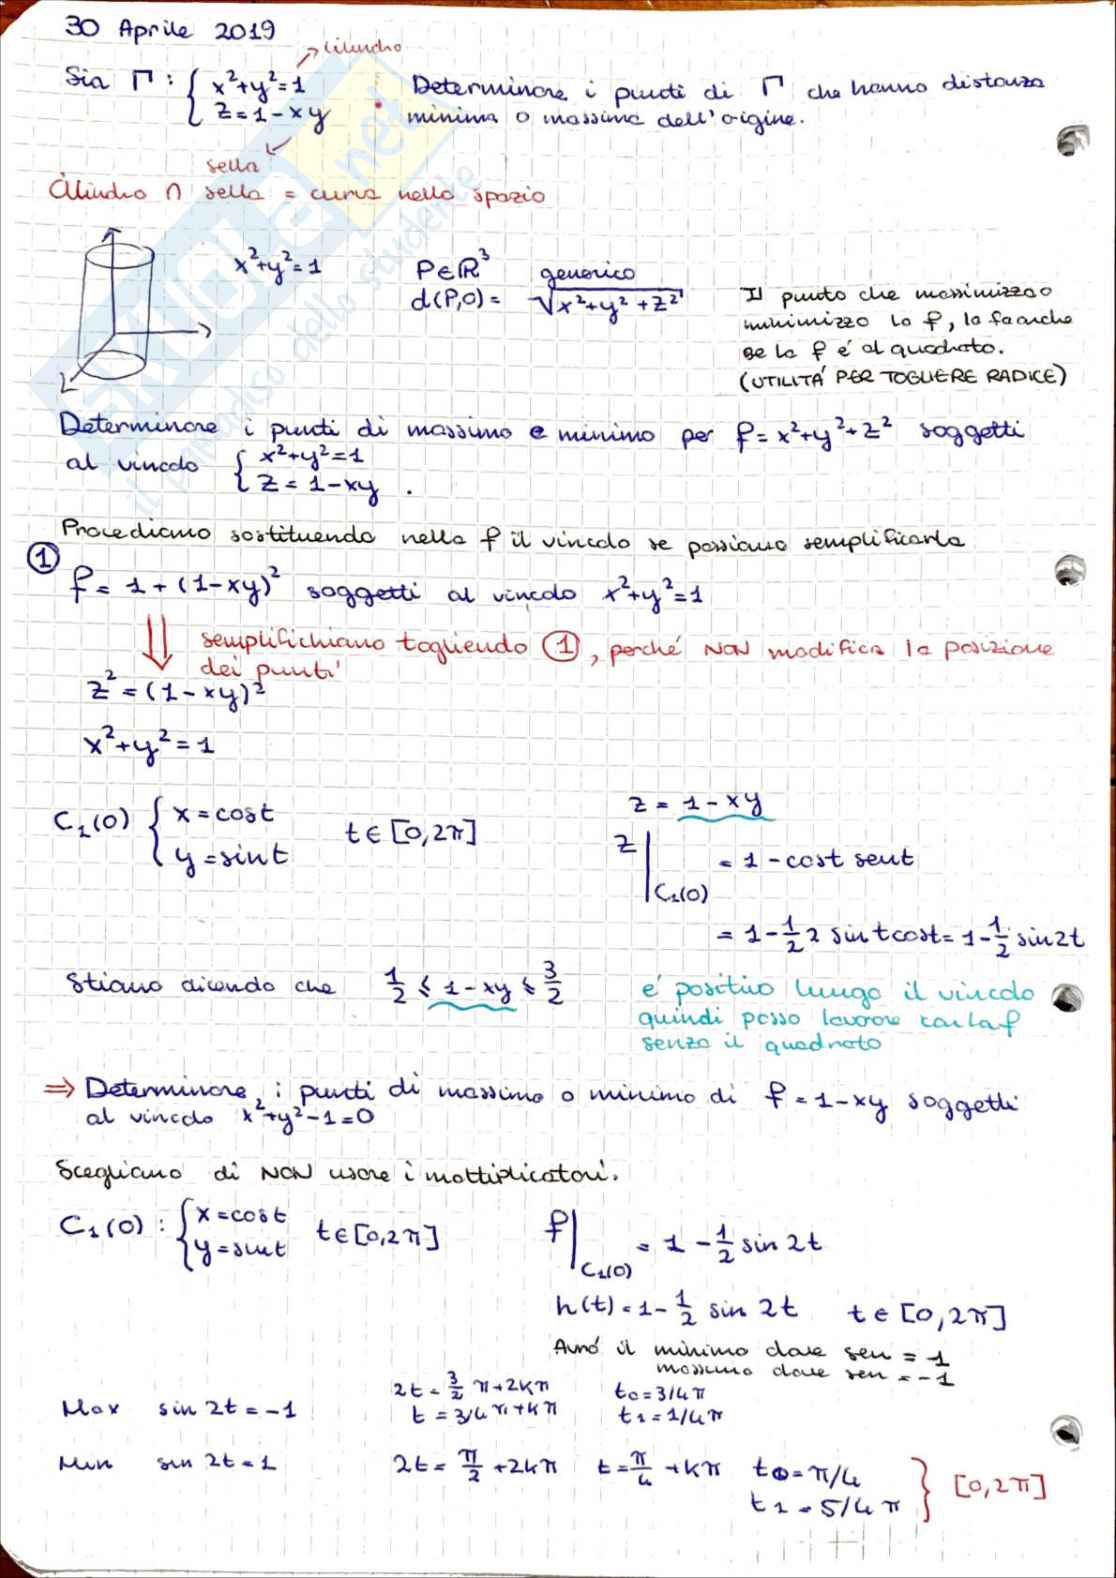 30 Aprile 2019
cilindro
Sia Γ : { x²+y²=1 Determinare i punti di Γ che hanno distanza
z=1-xy minima o massima dall'origine.
sella
Cilindro ∩ sella = curva nello spazio
x²+y²=1 P∈ℝ³ generico
d(P,O) = √x²+y²+z² Il punto che massimizza o
minimizza la f, lo fa anche
se la f é al quadrato.
(UTILITÁ PER TOGLIERE RADICE)
Determinare i punti di massimo e minimo per f=x²+y²+z² soggetti
al vincolo { x²+y²=1
z = 1-xy .
Procediamo sostituendo nella f il vincolo se possiamo semplificarla
①
f = 1+(1-xy)² soggetti al vincolo x²+y²=1
⇓ semplifichiamo togliendo ①, perché NON modifica la posizione
dei punti
z²=(1-xy)²
x²+y²=1
C₁(0) { x=cost t∈[0,2π] z = 1-xy
y=sint z|C₁(0) = 1-cost sent
= 1-½ 2 sintcost = 1-½ sin2t
Stiamo dicendo che ½ ≤ 1-xy ≤ 3/2 é positivo lungo il vincolo
quindi posso lavorare con la f
senza il quadrato
⇒ Determinare i punti di massimo o minimo di f=1-xy soggetti
al vincolo x²+y²-1=0
Scegliamo di NON usare i moltiplicatori.
C₁(0) : { x=cost t∈[0,2π] f|C₁(0) = 1-½ sin 2t
y=sint
h(t)=1-½ sin 2t t∈[0,2π]
Avró il minimo dove sen = 1
massimo dove sen = -1
Max sin 2t=-1 2t=3/2 π+2kπ t₀=3/4π
t=3/4π+kπ t₁=1/4π
Min sin 2t=1 2t=π/2+2kπ t=π/4+kπ t₀=π/4
t₁=5/4π } [0,2π]